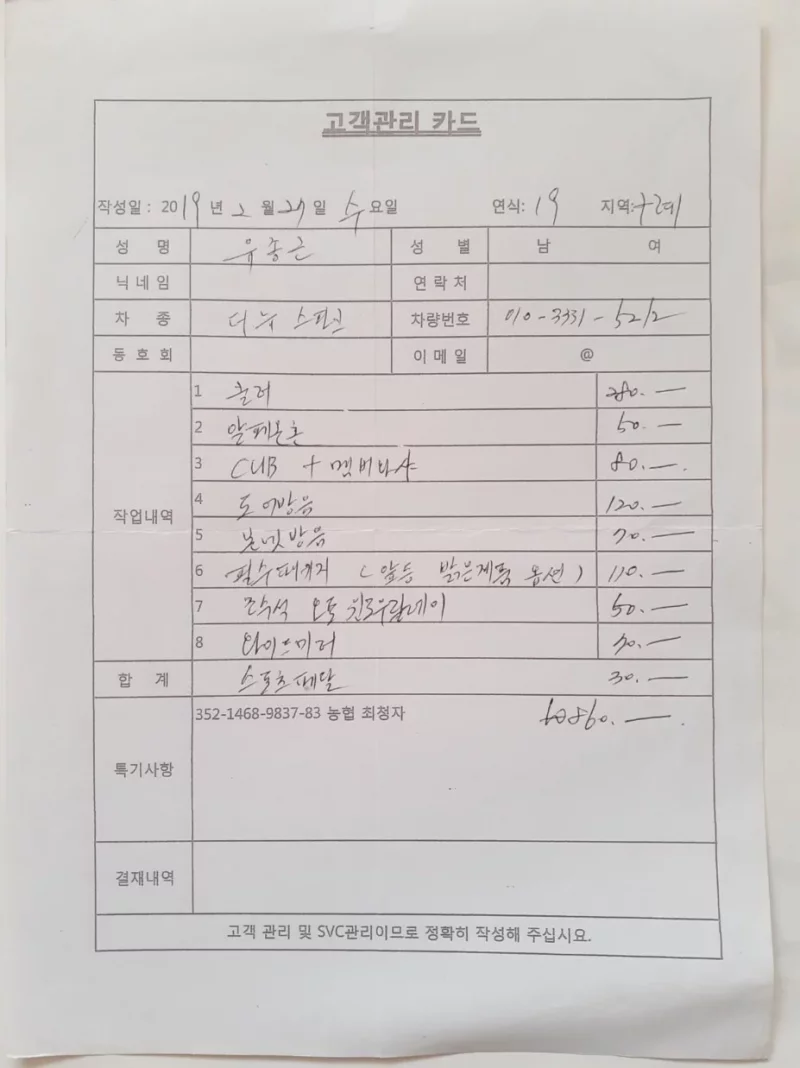 고객관리 카드
작성일 : 2019 년 2 월 27 일 수 요일 연식: 19 지역: 구례
성 명 유종근 성 별 남 여
닉네임 연락처
차 종 더뉴 스파크 차량번호 010-3331-5212
동호회 이메일 @
작업내역
1 컬러 280.—
2 알페온혼 50.—
3 CUB + 멕버나사 80.—.
4 도어방음 120.—
5 본넷방음 70.—
6 필수패키지 ( 앞등 밝은제품 옵션 ) 110.—
7 조수석 오토 윈도우릴레이 50.—
8 와이드미러 70.—
합 계 스포츠페달 30.—
특기사항 352-1468-9837-83 농협 최청자 860.—.
결재내역
고객 관리 및 SVC관리이므로 정확히 작성해 주십시요.